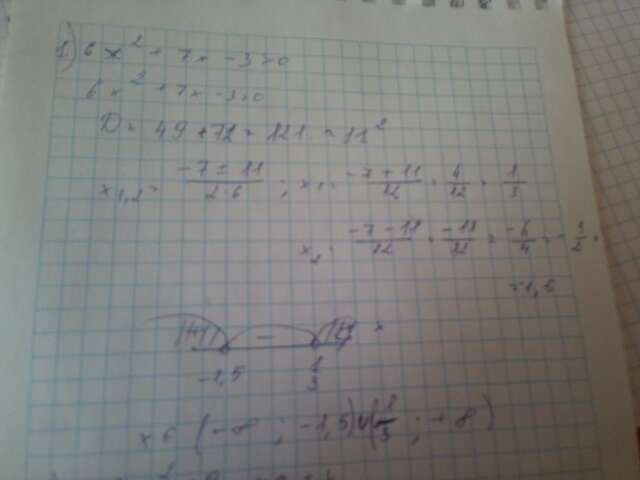 1) 6x² + 7x - 3 > 0
6x² + 7x - 3 = 0
D = 49 + 72 = 121 = 11²
x₁,₂ = (-7 ± 11)/(2·6) ; x₁ = (-7 + 11)/12 = 4/12 = 1/3
x₂ = (-7 - 11)/12 = -18/12 = -6/4 = -3/2 =
= -1,5
+ - + x
-1,5 1/3
x ∈ (-∞ ; -1,5) ∪ (1/3 ; +∞)